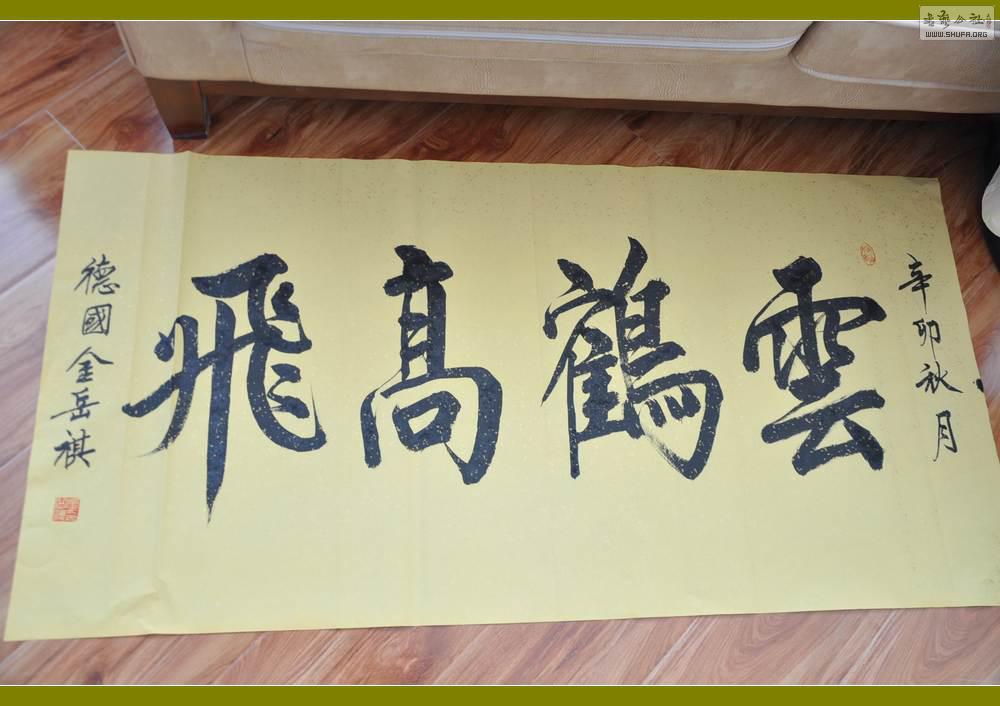 辛卯秋月
雲鶴高飛
德國金岳祺
WWW.SHUFA.ORG